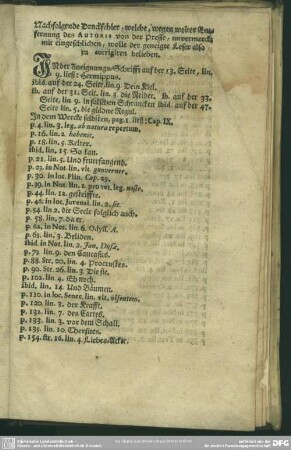 Nachfolgende Druckfehler, welche, wegen weiter Ent-
fernung des AUTORIS von der Presse, unvermerckt
mit eingeschlichen, wolle der geneigte Leser also
zu corrigiren belieben.
IN der Zueignungs-Schrifft auf der 13. Seite, lin.
9. ließ: Hermippus.
ibid. auf der 24. Seite, lin. 9. Dein Kiel.
ib. auf der 31. Seit. lin. 3. die Neider. ib. auf der 33.
Seite, lin. 9. in solchen Schrancken ibid. auf der 47.
Seite lin. 5. die güldne Regul.
In dem Wercke selbsten, pag. 1. ließ: Cap. IX.
p. 4. lin. 3. leg. ab natura repertum.
p. 16. lin. 2. habemus.
p. 18. lin. 5. Kelter.
ibid. lin. 15. So kan.
p. 21. lin. 5. Und feuerfangend.
p. 23. in Not. lin. vlt. gouverner.
p. 30. in loc. Plin. Cap. 29.
p. 39. in Not. lin. 2. pro vet. leg. nostr.
p. 44. lin. 12. gesteiffte.
p. 46. in loc. Juvenal. lin. 2. sic.
p. 54. lin. 2. die Seele folglich auch.
p. 58. lin. 7. da er.
p. 62. in Not. lin. 6. Odyss. A.
p. 65. lin. 3. Beliden.
ibid. in Not. lin. 2. Jun.
p. 71. lin. 9. den Caucasus.
p. 88. Str. 20. lin. 4. Procrustes.
p. 90. Str. 26. lin. 3. Die sie.
p. 102. lin. 4.
ibid. lin. 14. Und Bäumen.
p. 110. in loc. Senec. lin. vlt.
p. 120. lin. 3. der Krafft.
p. 132. lin. 7. des Cartes.
p. 133. lin. 3. vor dem Schall.
p. 135. lin. 10. Thersites.
p. 154. str. 16. lin. 4. Liebes-Acker.